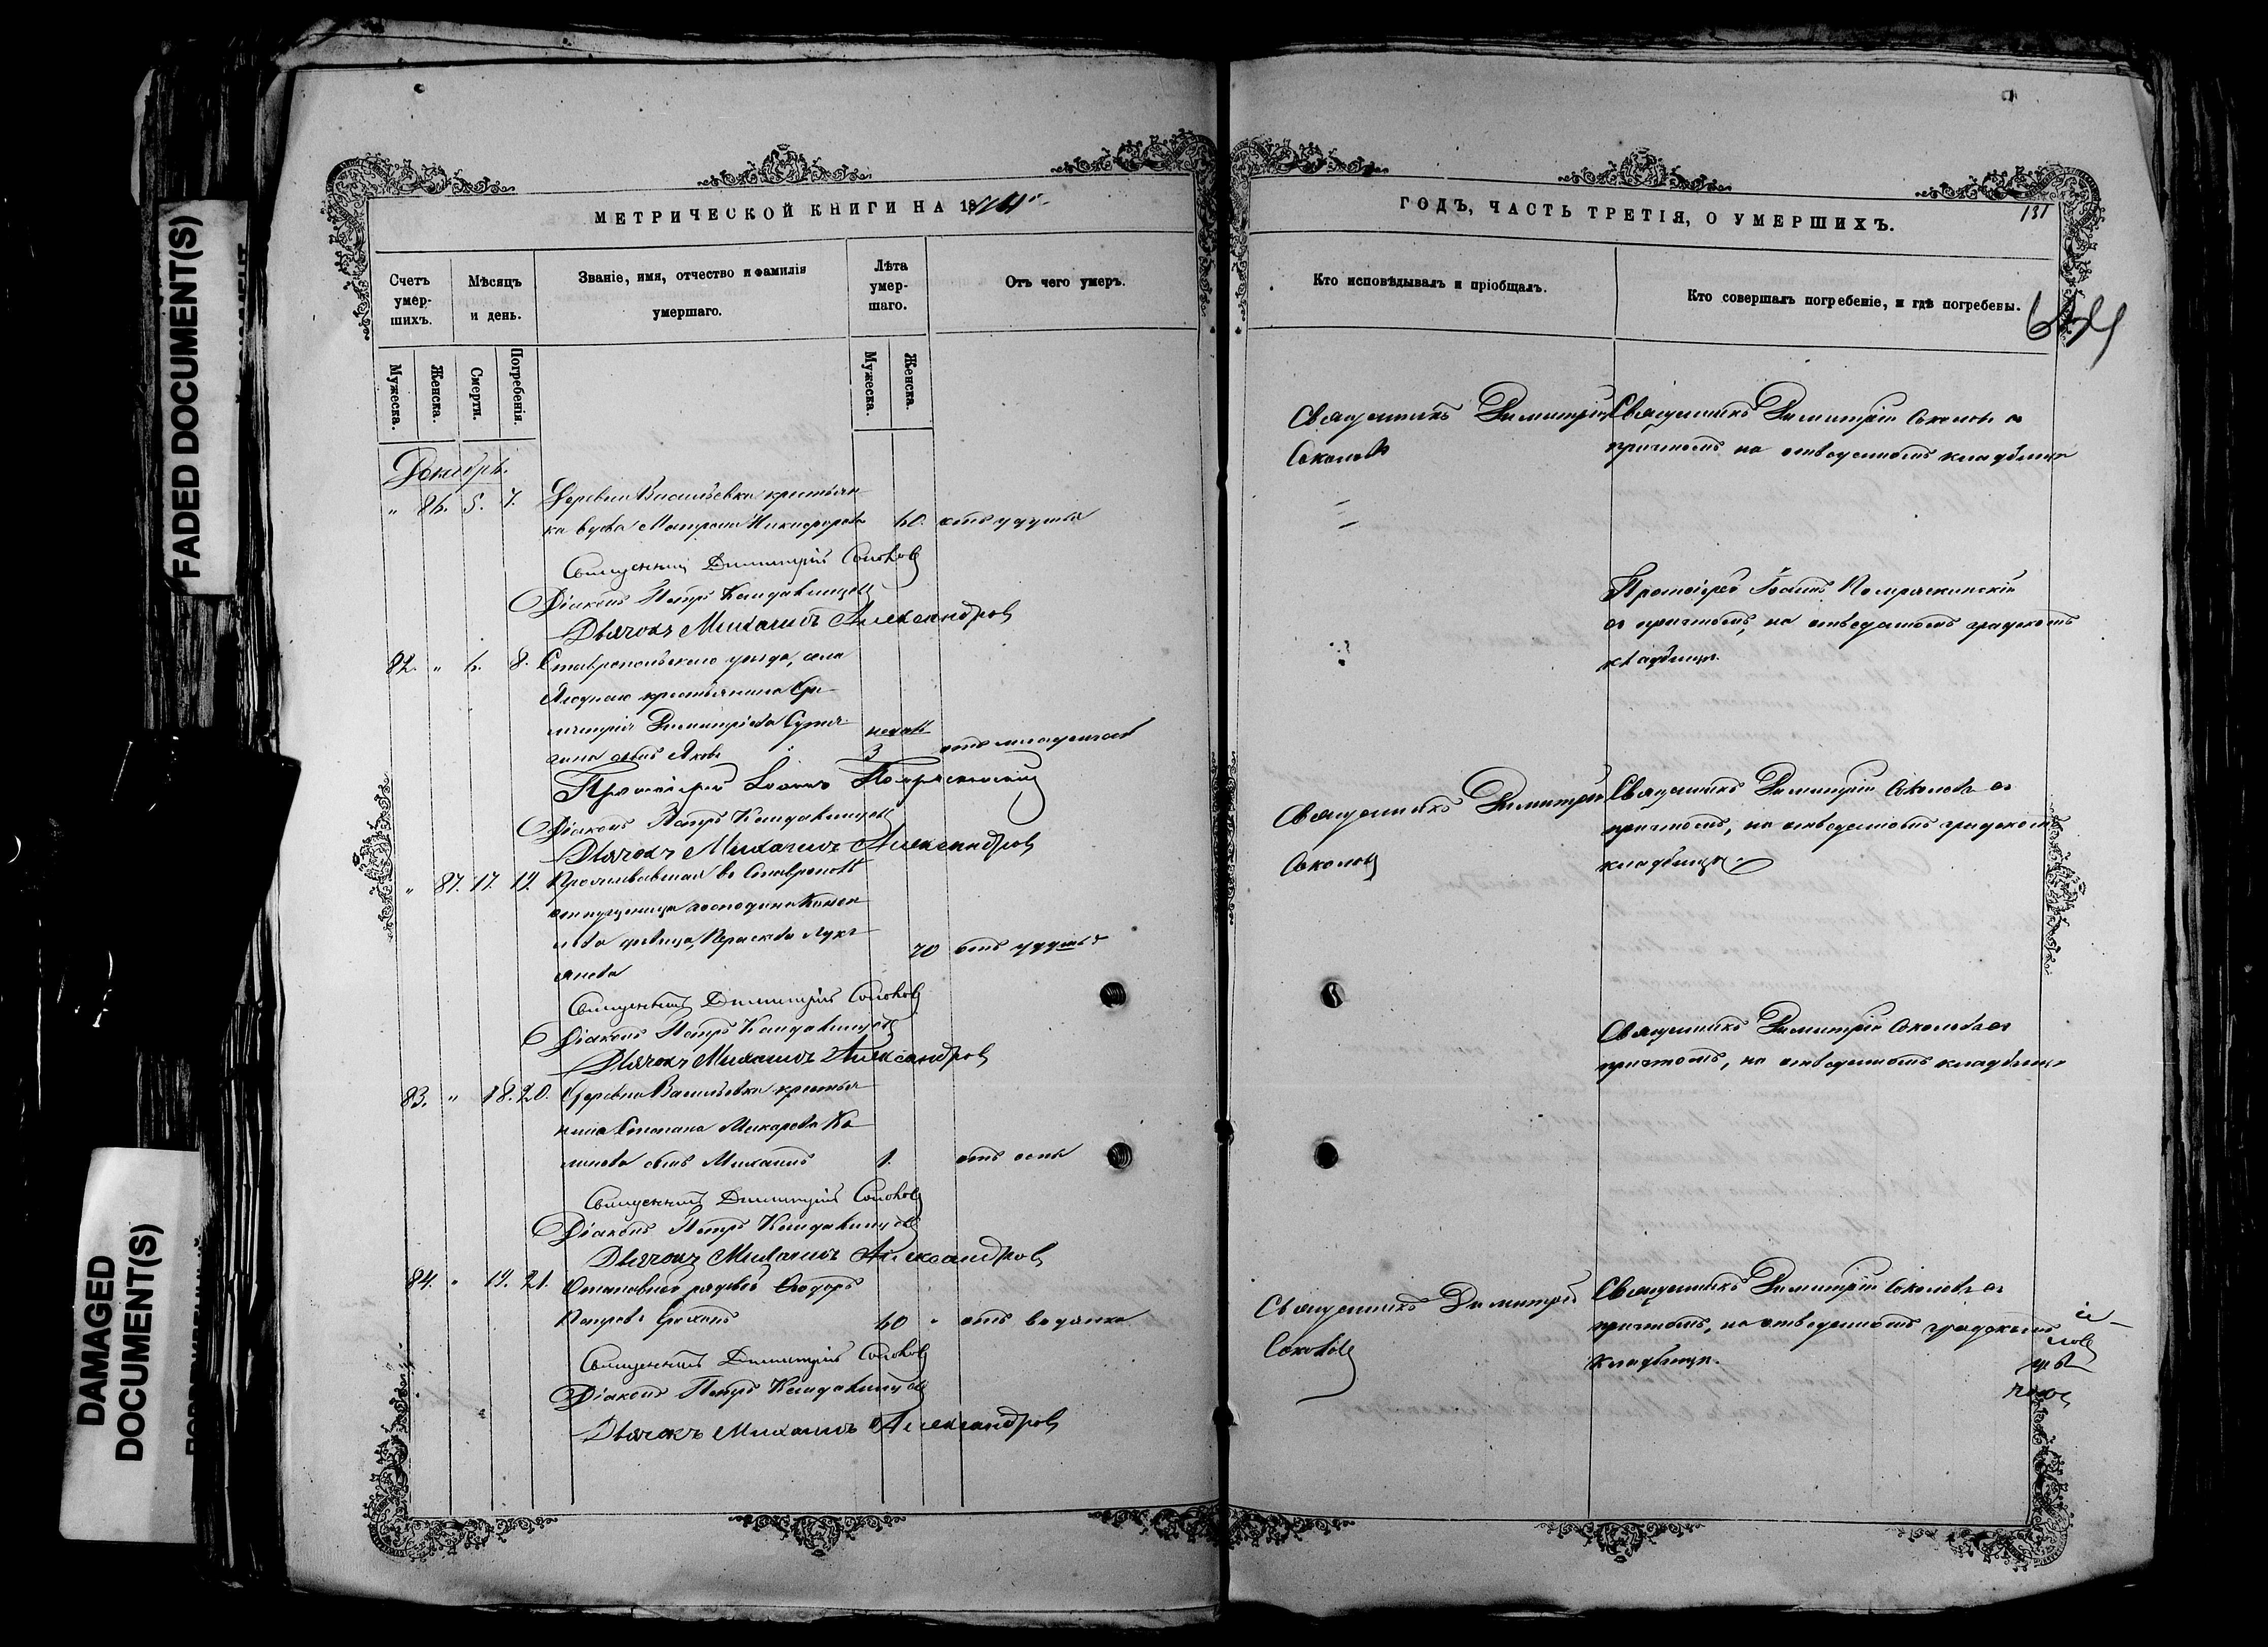 FADED DOCUMENT(S)
DAMAGED
DOCUMENT(S)
МЕТРИЧЕСКОЙ КНИГИ НА 18
Счетъ умер-шихъ.
Мѣсяцъ и день.
Званіе, имя, отчество и фамилія
умершаго.
Лѣта умер-шаго.
Отъ чего умеръ.
Мужеска.
Женска.
Смерти.
Погребенія.
Мужеска.
Женска.
Декабрь.
" 86. 5. 7. Деревни Васильевки крестьян
ка вдова Матрона Никифорова 60. отъ удушья
Священникъ Димитрій Соколовъ
Діаконъ Петръ
Дьячокъ Михаилъ Александровъ
82. " 6. 8. Ставропольскаго уѣзда, села
Ягоднаго крестьянина
Димитріева
сынъ Яковъ 3
Протоіерей Іоаннъ
Діаконъ Петръ
Дьячокъ Михаилъ Александровъ
" 87. 17. 19. Проживавшая въ Ставрополѣ
отпущеница господина
дѣвица, Параскева Лукі
янова 70 отъ удушья
Священникъ Димитрій Соколовъ
Діаконъ Петръ
Дьячокъ Михаилъ Александровъ
83. " 18. 20. Деревни Васильевки крестья
нина Степана Макарова
сынъ Михаилъ 1. отъ оспы
Священникъ Димитрій Соколовъ
Діаконъ Петръ
Дьячокъ Михаилъ Александровъ
84. " 19. 21. Отставной рядовой Ѳеодоръ
Петровъ 60 " отъ водянки
Священникъ Димитрій Соколовъ
Діаконъ Петръ
Дьячокъ Михаилъ Александровъ
ГОДЪ, ЧАСТЬ ТРЕТІЯ, О УМЕРШИХЪ.
131
Кто исповѣдывалъ и пріобщалъ.
Кто совершалъ погребеніе, и гдѣ погребены.
Священникъ Димитрій
Соколовъ
Священникъ Димитрій Соколовъ съ
причтомъ на отведенномъ кладбищѣ
Протоіерей Іоаннъ
съ причтомъ, на отведенномъ градскомъ
кладбищѣ.
Священникъ Димитрій
Соколовъ
Священникъ Димитрій Соколовъ съ
причтомъ, на отведенномъ градскомъ
кладбищѣ.
Священникъ Димитрій Соколовъ съ
причтомъ, на отведенномъ кладбищѣ
Священникъ Димитрій
Соколовъ
Священникъ Димитрій Соколовъ съ
причтомъ, на отведенномъ градскомъ
кладбищѣ.